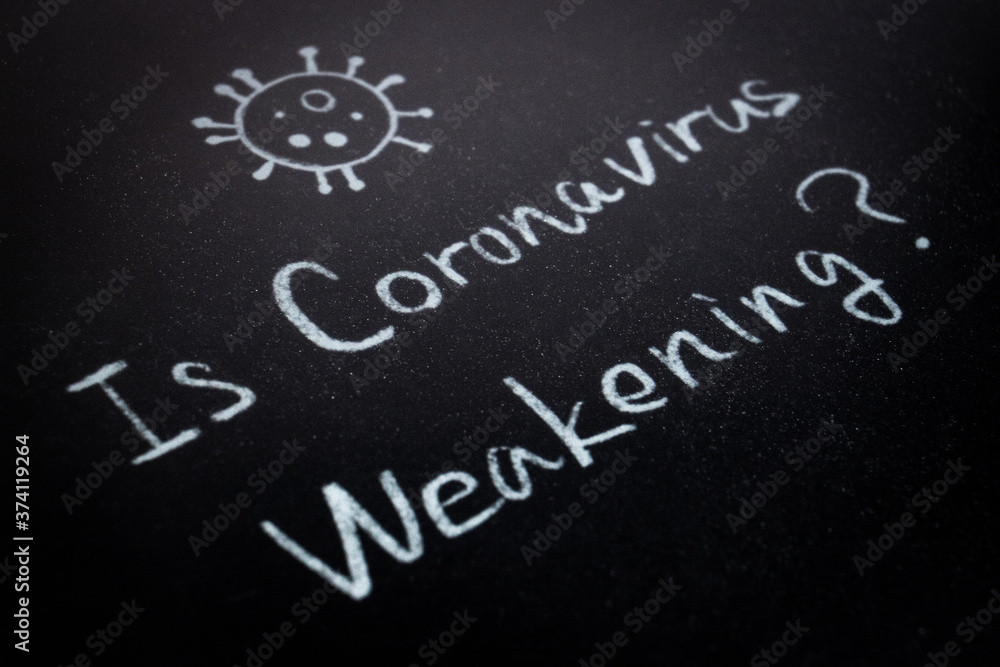 Is Coronavirus
Weakening?
Adobe Stock | #374119264
Adobe Stock